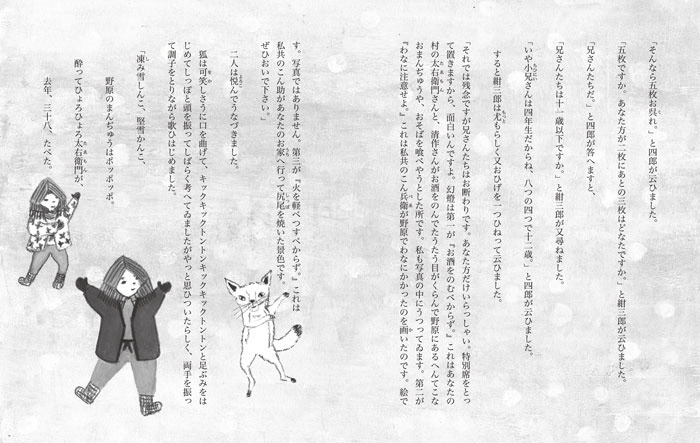 「そんなら五枚お呉れ。」と四郎が云ひました。
「五枚ですか。あなた方が二枚にあとの三枚はどなたですか。」と紺三郎が云ひました。
「兄さんたちだ。」と四郎が答へますと、
「兄さんたちは十一歳以下ですか。」と紺三郎が又尋ねました。
「いや小兄さんは四年生だからね、八つの四つで十二歳。」と四郎が云ひました。
すると紺三郎は尤もらしく又おひげを一つひねって云ひました。
「それでは残念ですが兄さんたちはお断わりです。あなた方だけいらっしゃい。特別席をとっ
て置きますから、面白いんですよ。幻燈は第一が『お酒をのむべからず。』これはあなたの
村の太右衛門さんと、清作さんがお酒をのんでたうたう目がくらんで野原にあるへんてこな
おまんぢゅうや、おそばを喰べやうとした所です。私も写真の中にうつってゐます。第二が
『わなに注意せよ。』これは私共のこん兵衛が野原でわなにかかったのを画いたのです。絵で
す。写真ではありません。第三が『火を軽べつすべからず。』これは
私共のこん助があなたのお家へ行って尻尾を焼いた景色です。
ぜひおいで下さい。」
二人は悦んでうなづきました。
狐は可笑しさうに口を曲げて、キックキックトントンキックキックトントンと足ぶみをは
じめてしっぽと頭を振ってしばらく考へてゐましたがやっと思ひついたらしく、両手を振っ
て調子をとりながら歌ひはじめました。
「凍み雪しんこ、堅雪かんこ、
野原のまんぢゅうはポッポッポ。
酔ってひょろひょろ太右衛門が、
去年、三十八、たべた。